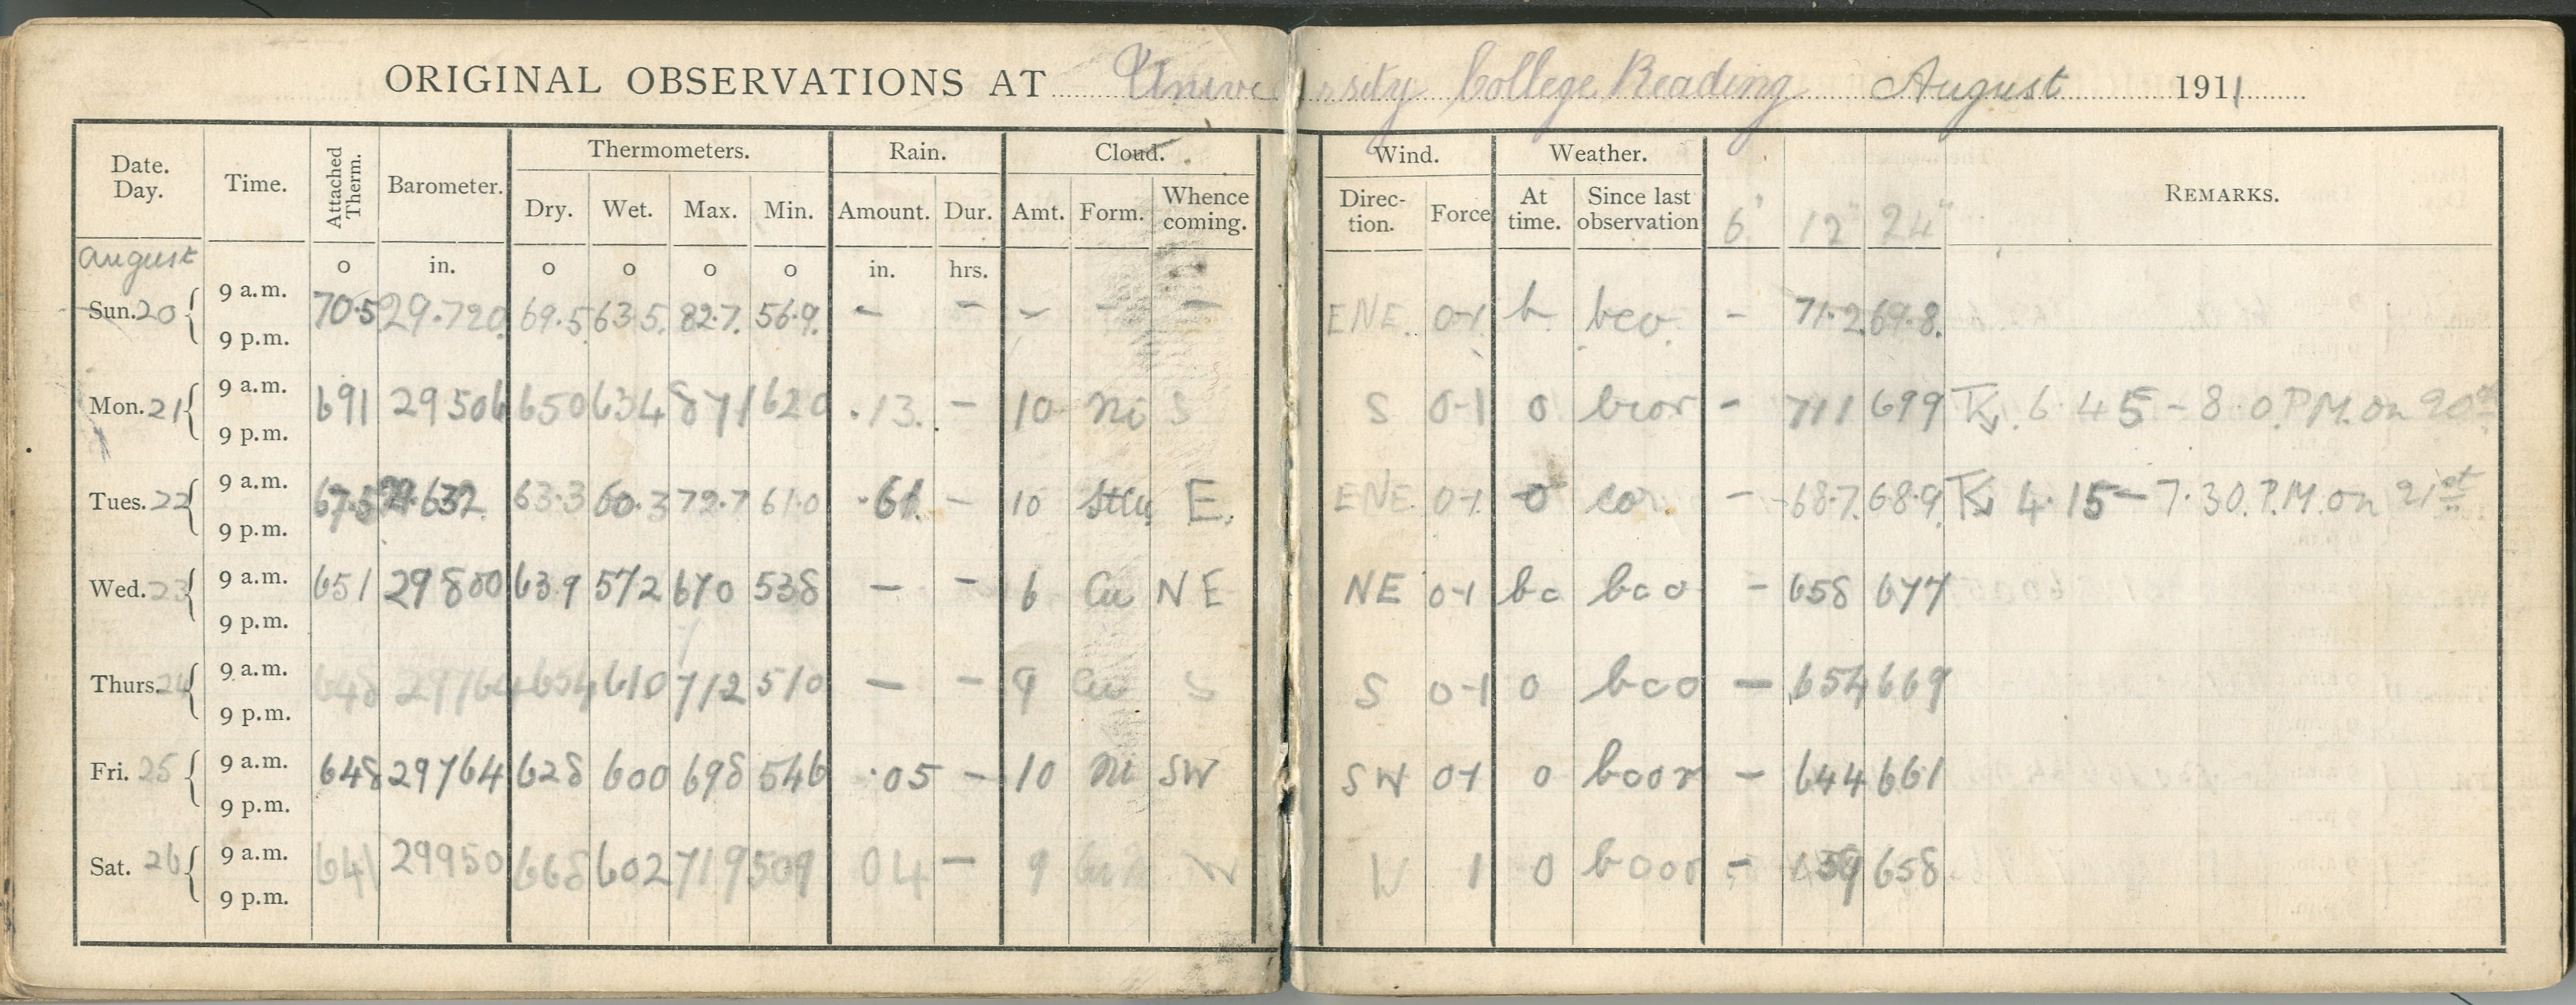 ORIGINAL OBSERVATIONS AT University College Reading August 1911
Date. Day. Time. Attached Therm. Barometer. Thermometers. Rain. Cloud. Wind. Weather. REMARKS.
Dry. Wet. Max. Min. Amount. Dur. Amt. Form. Whence coming. Direc-tion. Force At time. Since last observation 6" 12" 24"
August o in. o o o o in. hrs.
Sun. 20 9 a.m. 70.5 29.720 69.5 63.5 82.7 56.9 - - - - - ENE. 0-1 b bco - 71.2 69.8
9 p.m.
Mon. 21 9 a.m. 691 29506 650 634 871 620 .13 - 10 Ni S S 0-1 o bcor - 711 699 6.45 - 8.0 P.M. on 20th
9 p.m.
Tues. 22 9 a.m. 67.5 29.632 63.3 60.3 72.7 61.0 .61 - 10 StCu E. ENE. 0-1 o cor - 68.7 68.9 4.15 - 7.30. P.M. on 21st
9 p.m.
Wed. 23 9 a.m. 651 29800 63.9 572 670 538 - - 6 Cu NE NE 0-1 bc bco - 658 677
9 p.m.
Thurs. 24 9 a.m. 648 29764 654 610 712 510 - - 9 Cu S S 0-1 o bco - 654 669
9 p.m.
Fri. 25 9 a.m. 648 29764 628 600 698 546 .05 - 10 Ni SW SW 0-1 o bcor - 644 661
9 p.m.
Sat. 26 9 a.m. 641 29950 668 602 719 509 04 - 9 W W 1 o bcor - 659 658
9 p.m.